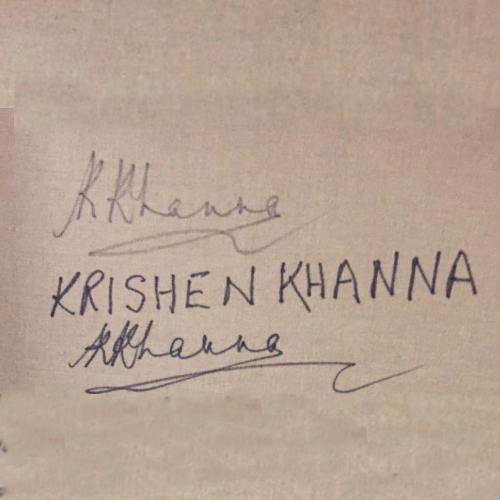 KKhanna
KRISHEN KHANNA
KKhanna